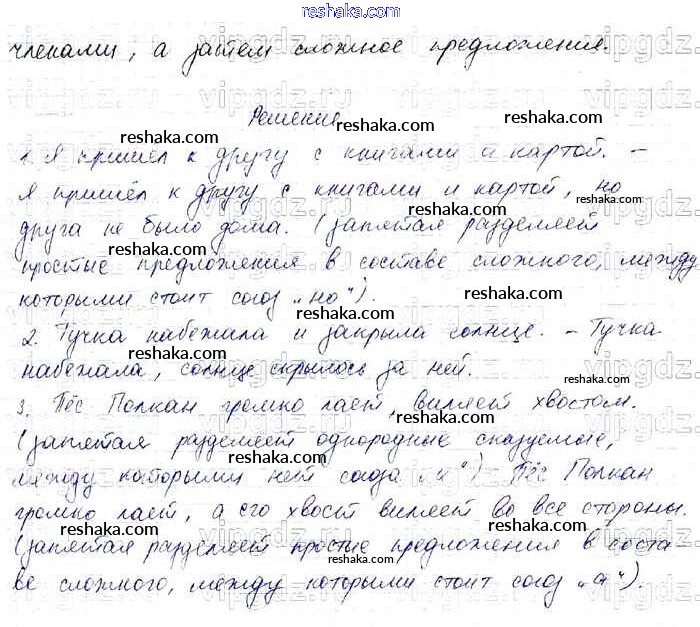 reshaka.com
членами, а затем сложное предложения.
Решение
1. Я пришёл к другу с книгами и картой. –
Я пришёл к другу с книгами и картой, но
друга не было дома. (запятая разделяет
простые предложения в составе сложного, между
которыми стоит союз „но“).
2. Тучка набежала и закрыла солнце. – Тучка
набежала, солнце скрылось за ней.
3. Пёс Полкан громко лает, виляет хвостом.
(запятая разделяет однородные сказуемые,
между которыми нет союза „и“) – Пёс Полкан
громко лает, а его хвост виляет во все стороны.
(запятая разделяет простые предложения в соста
ве сложного, между которыми стоит союз „а“).